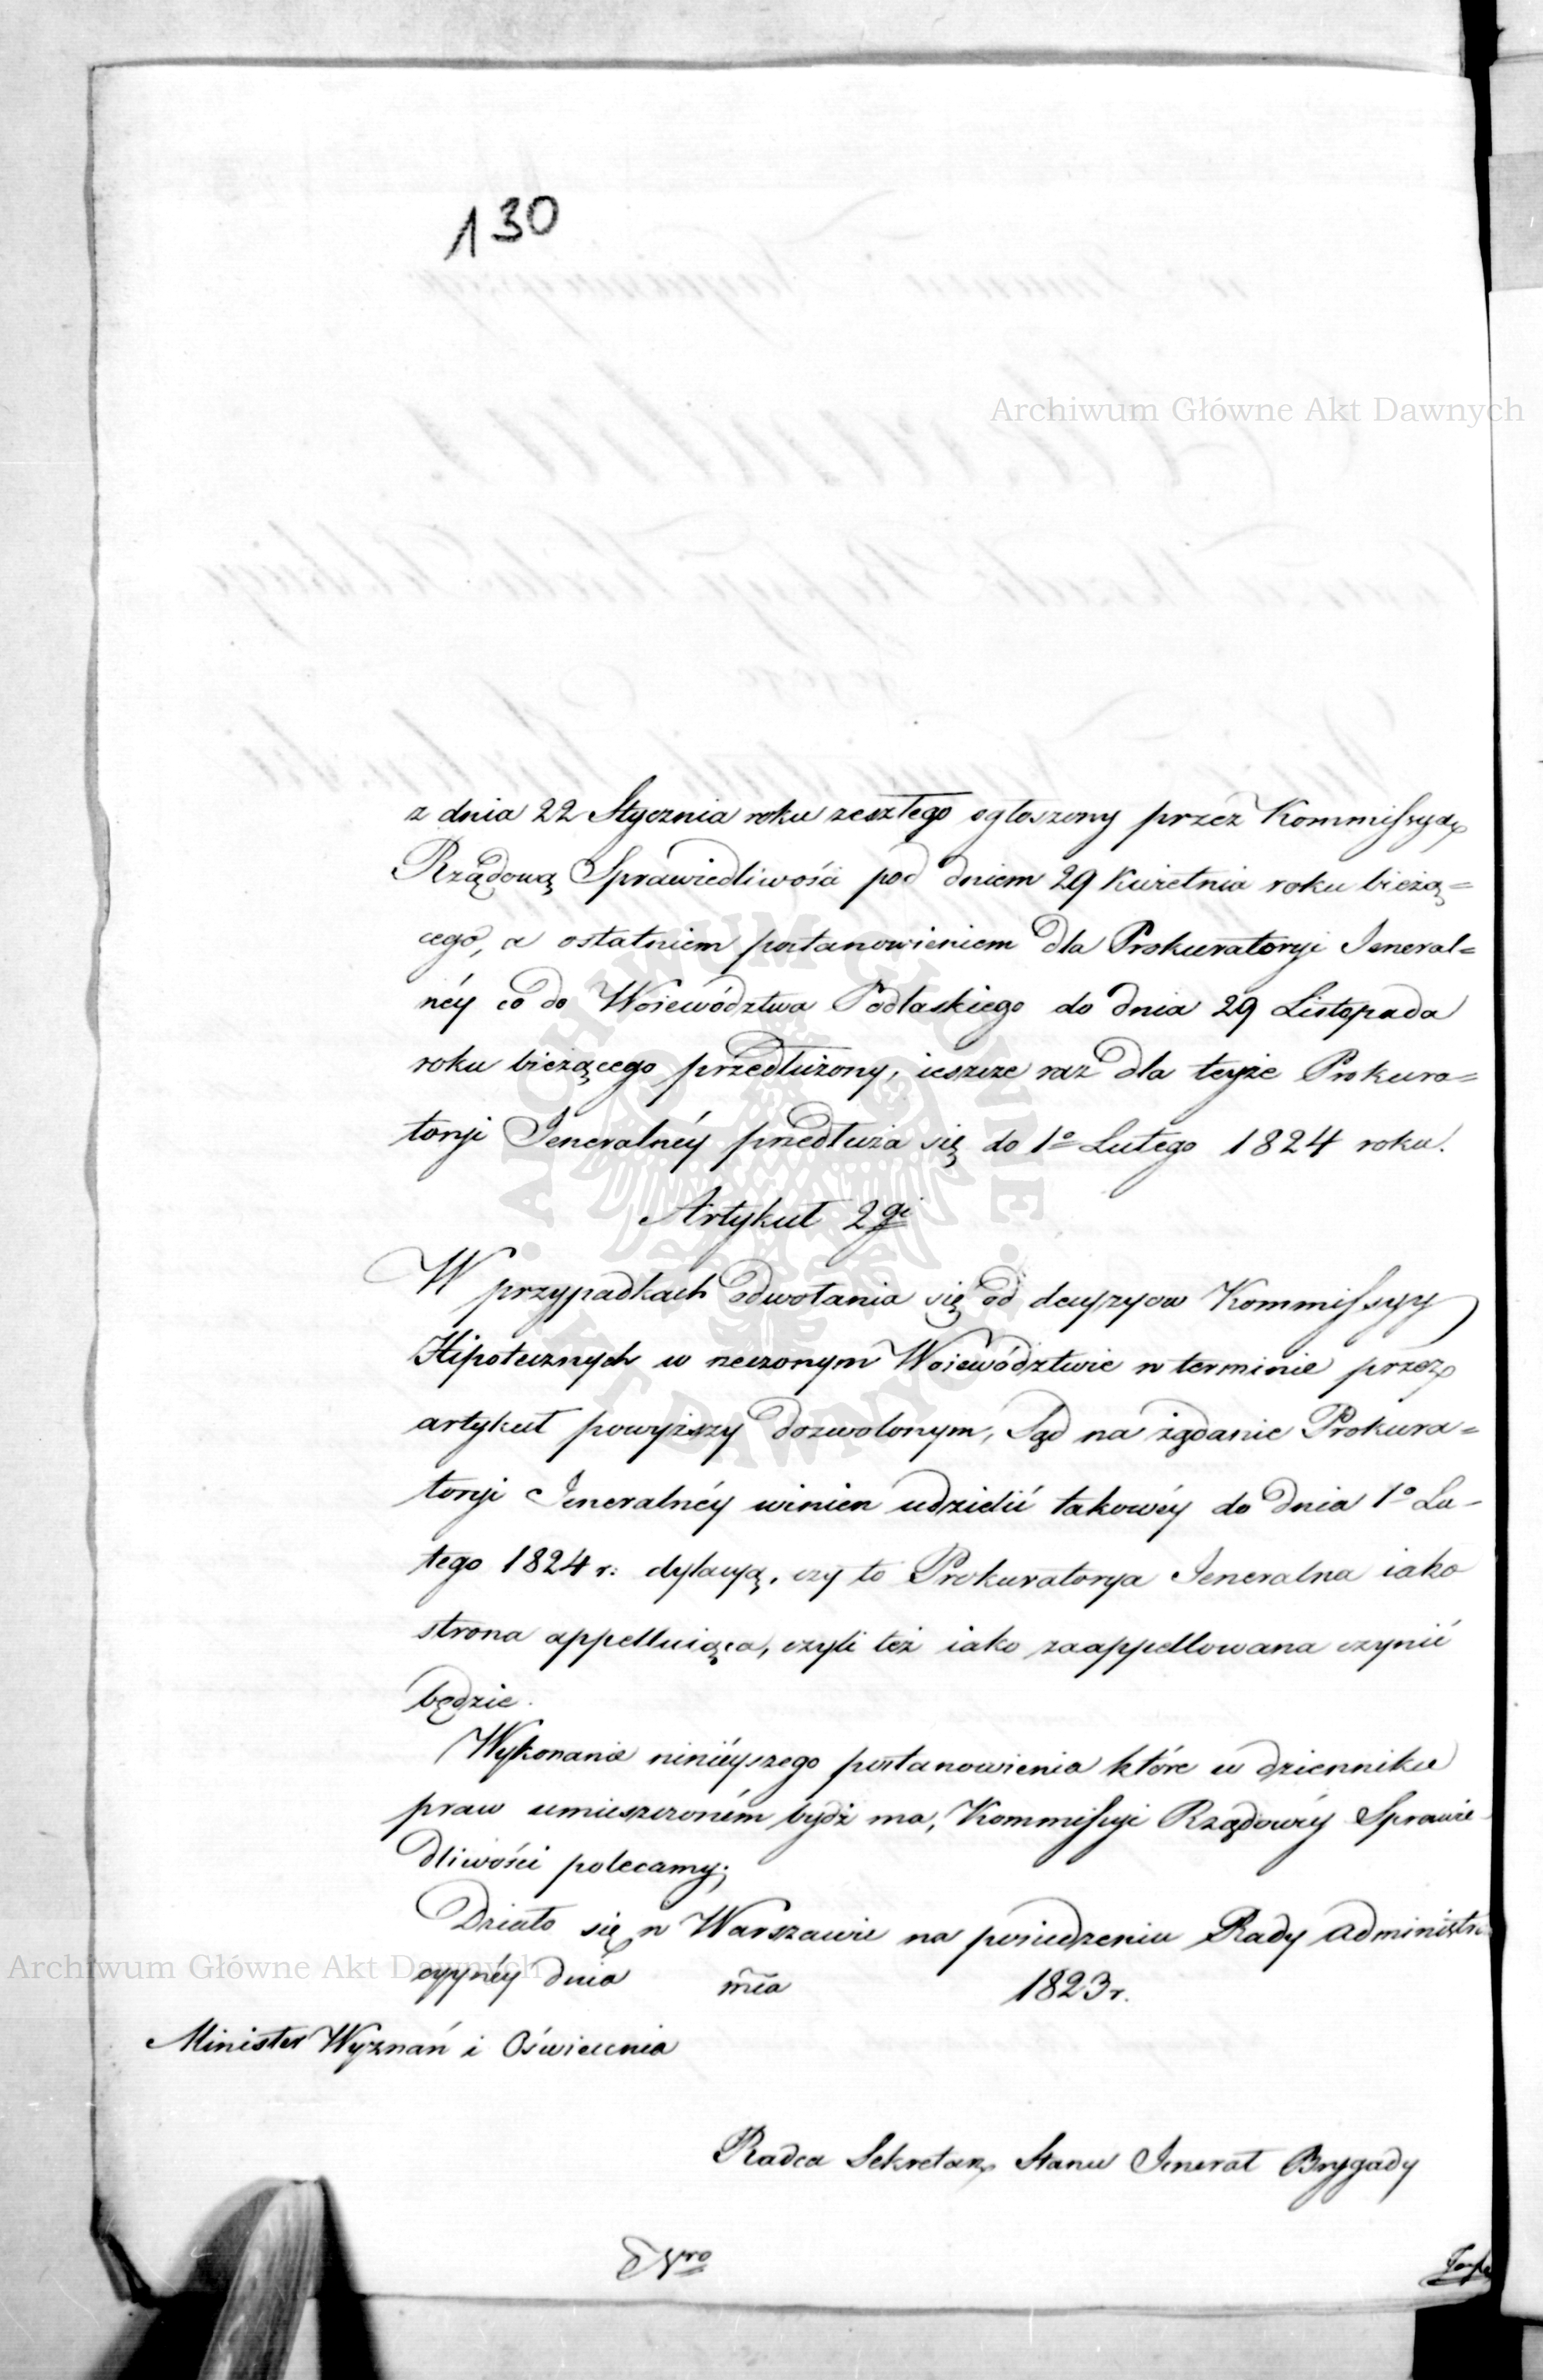 130
Archiwum Główne Akt Dawnych
z dnia 22 Stycznia roku zeszłego ogłoszony przez Kommissyą
Rządową Sprawiedliwości pod dniem 29 Kwietnia roku bieżą=
cego, a ostatniem postanowieniem dla Prokuratoryi Jeneral=
néy co do Województwa Podlaskiego do dnia 29 Listopada
roku bieżącego przedłużony, ieszcze raz dla teyże Prokura=
toryi Jeneralnéy przedłuża się do 1o Lutego 1824 roku.
Artykuł 2gi
W przypadkach odwołania się od decyzyow Kommissyy
Hipotecznych w rzeczonym Województwie w terminie przez
artykuł powyższy dozwolonym, Sąd na żądanie Prokura=
toryi Jeneralnéy winien udzielić takowéy do dnia 1o Lu-
tego 1824 r: dylacyą, czy to Prokuratorya Jeneralna iako
strona appelluiąca, czyli też iako zaappellowana czynić
będzie.
Wykonanie ninieyszego postanowienia które w dzienniku
praw umieszczoném bydź ma, Kommissyi Rządowéy Sprawie-
dliwości polecamy.
Działo się w Warszawie na posiedzeniu Rady Administra
cyynéy dnia mca 1823 r.
Archiwum Główne Akt Dawnych
Minister Wyznań i Oświecenia
Radca Sekretarz Stanu Jenerał Brygady
ARCHIWUM GŁÓWNE AKT DAWNYCH